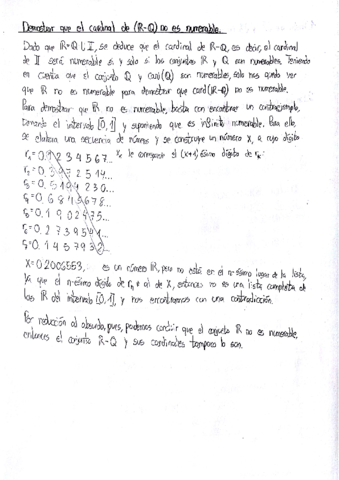 Demostrar que el cardinal de (R-Q) no es numerable.
Dado que R=Q∪I, se deduce que el cardinal de R-Q, es decir, el cardinal
de I será numerable si y solo si los conjuntos R y Q son numerables. Teniendo
en cuenta que el conjunto Q y card(Q) son numerables, solo nos queda ver
que R no es numerable para demostrar que card(R-Q) no es numerable.
Para demostrar que R no es numerable, basta con encontrar un contraejemplo.
Tomando el intervalo [0,1] y suponiendo que es infinito numerable. Para ello,
se elabora una secuencia de números y se construye un número X, a cuyo dígito
r₁=0.1234567... le corresponde el (x+1)ésimo dígito de
r₂=0.3972514...
r₃=0.5194230...
r₄=0.6845678...
r₅=0.1902475...
r₆=0.2739541...
r₇=0.1457932...
X=0.2006553, es un número R, pero no está en el n-ésimo lugar de la lista,
ya que el n-ésimo dígito de rₙ ≠ al de X, entonces no es una lista completa de
los R del intervalo [0,1], y nos encontramos con una contradicción.
Por reducción al absurdo, pues, podemos concluir que el conjunto R no es numerable,
entonces el conjunto R-Q y sus cardinales tampoco lo son.